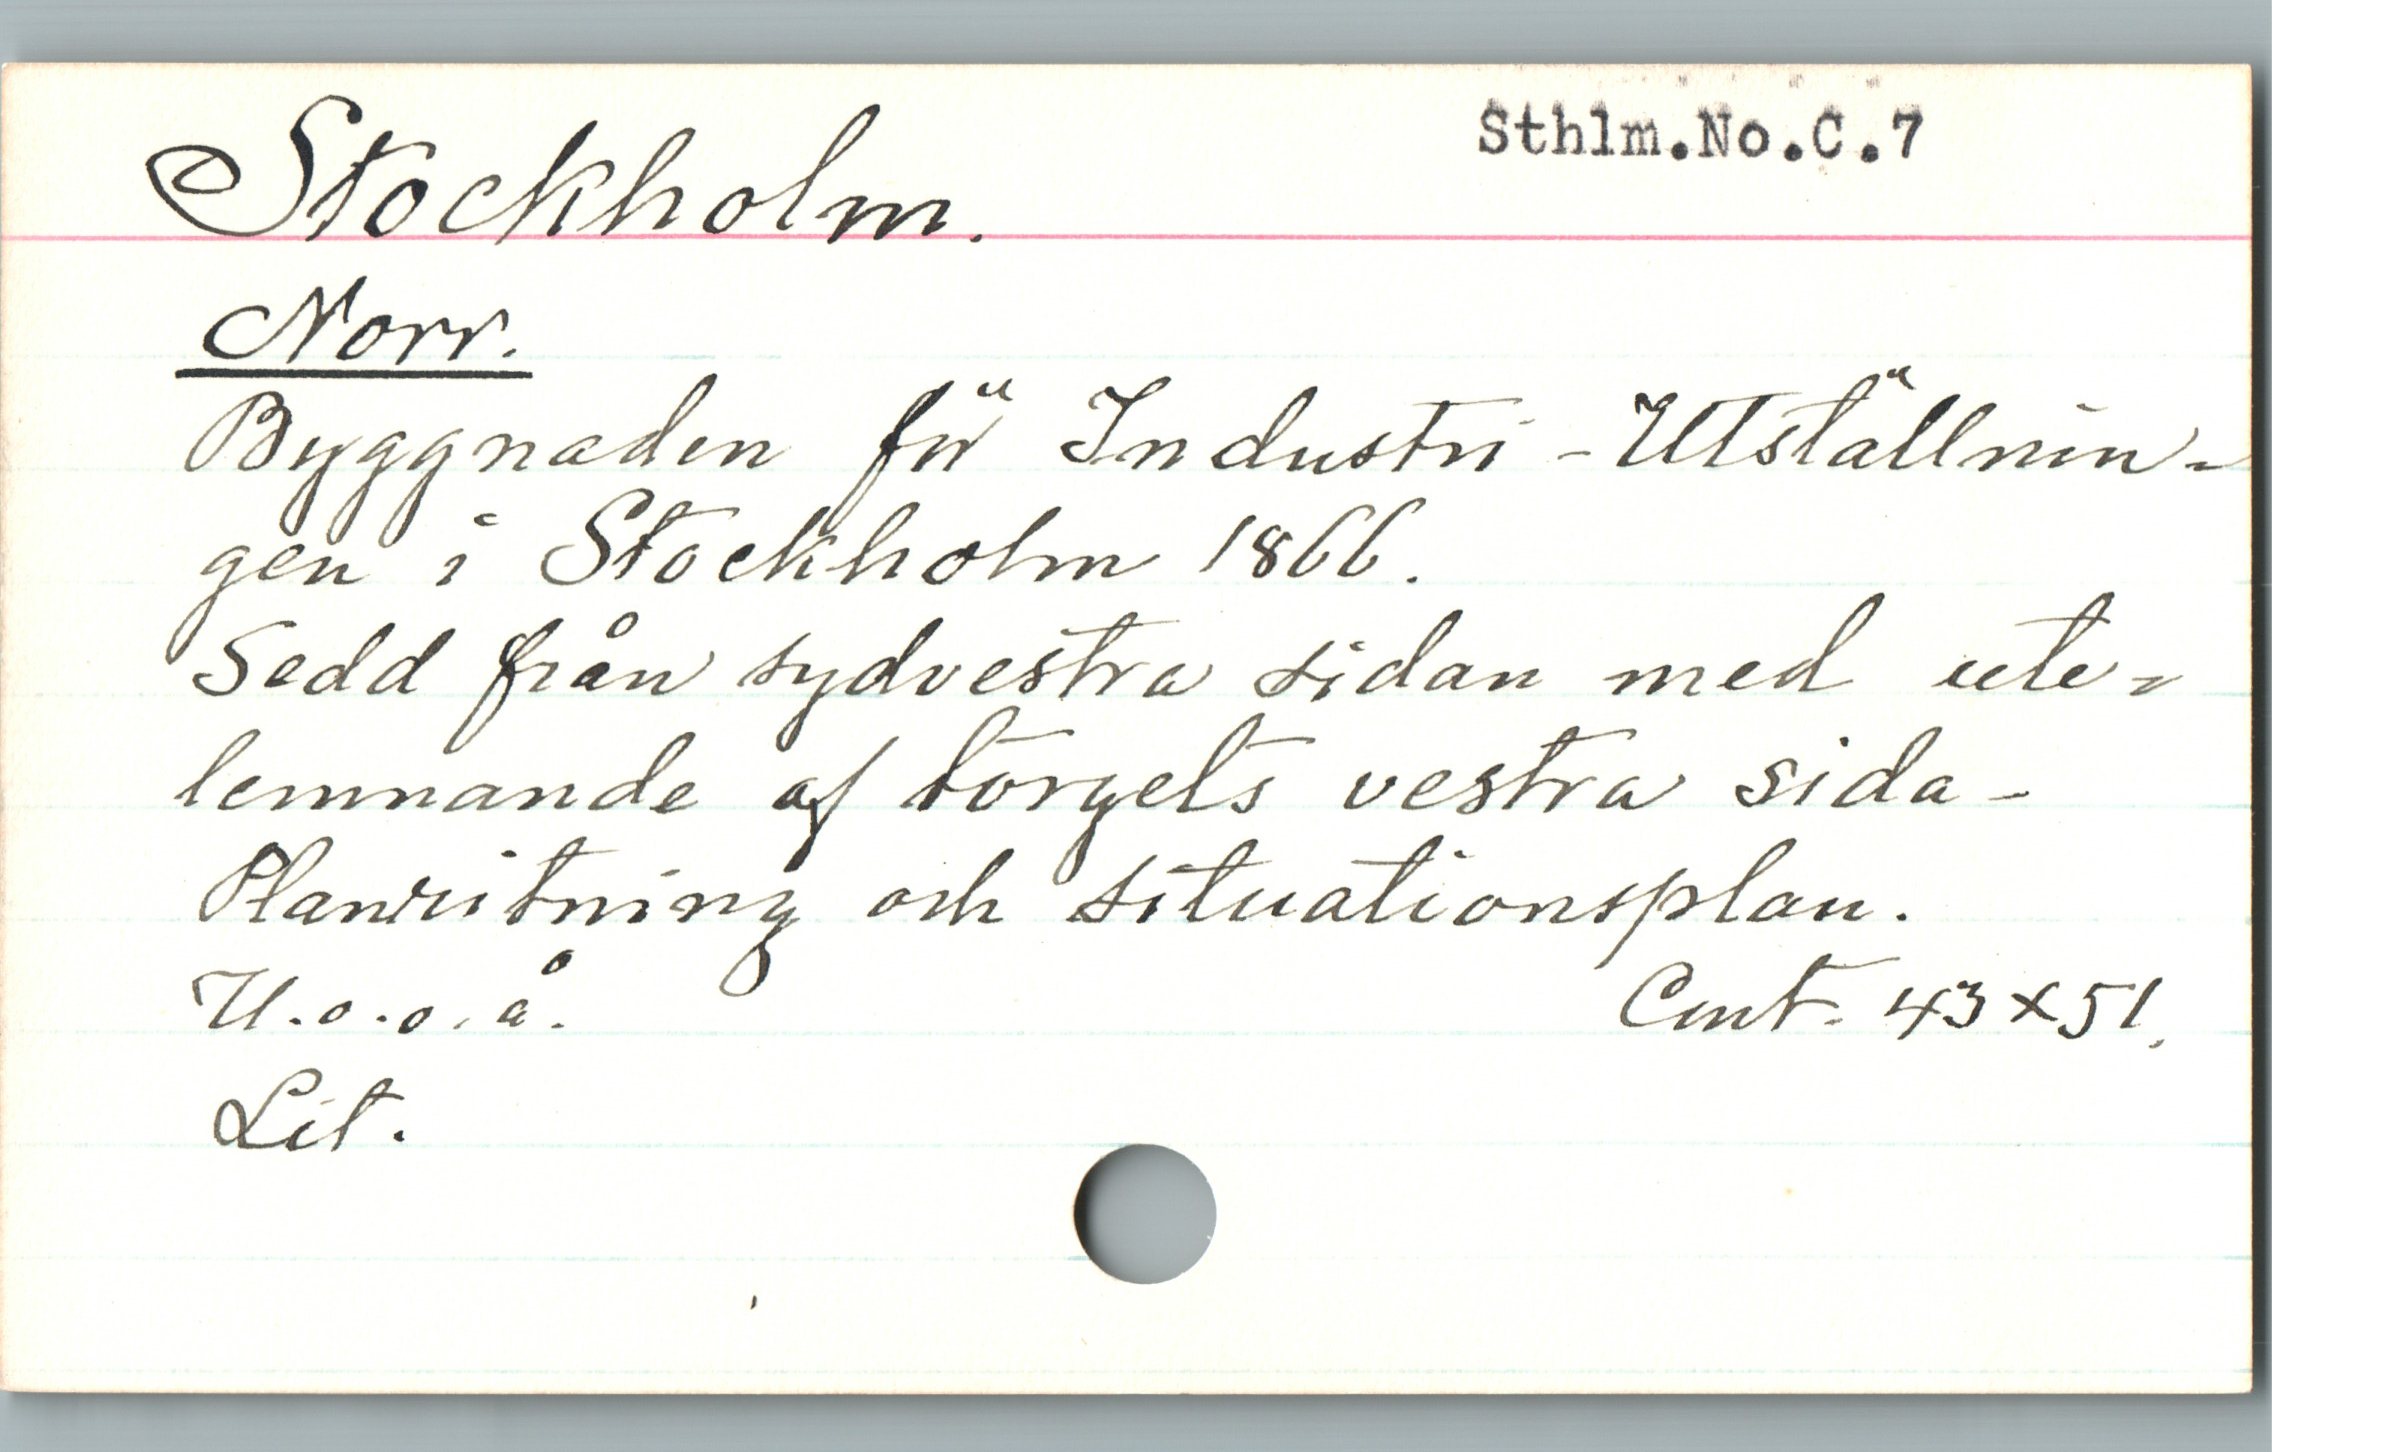 Sthlm.No.C.7
Stockholm.
Norr.
Byggnaden för Industri-Utställnin-
gen i Stockholm 1866.
Sedd från sydvestra sidan med ute-
lemnande af torgets vestra sida -
Planritning och situationsplan.
U.o.o.å.
Cmt. 43x51.
Lit.